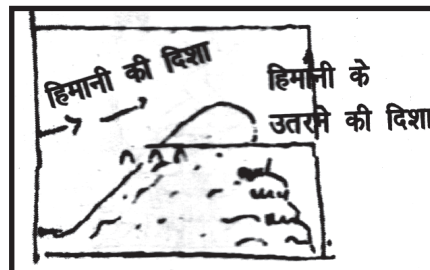 हिमानी की दिशा
हिमानी के
उतरने की दिशा